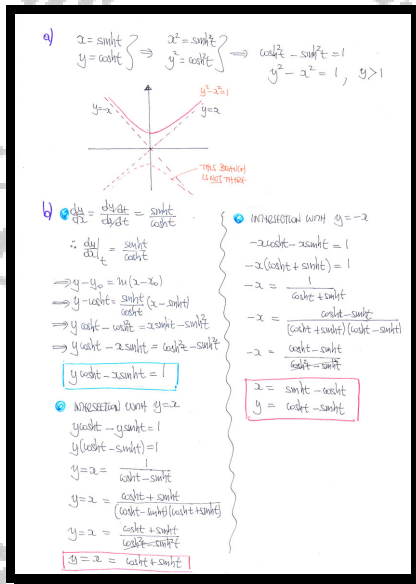 a) x = sinht } ⇒ x² = sinh²t } ⇒ cosh²t - sinh²t = 1
y = cosht } y² = cosh²t } y² - x² = 1 , y>1
y²-x²=1
y=-x
y=x
THIS BRANCH
IS NOT THERE
b) dy/dx = (dy/dt)/(dx/dt) = sinht/cosht
∴ dy/dx|t = sinht/cosht
⇒ y - y₀ = m(x - x₀)
⇒ y - cosht = sinht/cosht (x - sinht)
⇒ y cosht - cosh²t = x sinht - sinh²t
⇒ y cosht - x sinht = cosh²t - sinh²t
y cosht - x sinht = 1
INTERSECTION WITH y=x
y cosht - y sinht = 1
y(cosht - sinht) = 1
y = x = 1/(cosht - sinht)
y = x = (cosht + sinht)/((cosht - sinht)(cosht + sinht))
y = x = (cosht + sinht)/(cosh²t - sinh²t)
y = x = cosht + sinht
INTERSECTION WITH y = -x
-x cosht - x sinht = 1
-x(cosht + sinht) = 1
-x = 1/(cosht + sinht)
-x = (cosht - sinht)/((cosht + sinht)(cosht - sinht))
-x = (cosht - sinht)/(cosh²t - sinh²t)
x = sinht - cosht
y = cosht - sinht